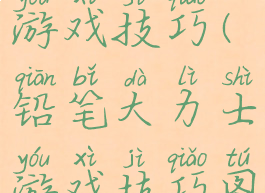 yóu xì jì qiǎo
游戏技巧(
qiān bǐ dà lì shì
铅笔大力士
yóu xì jì qiǎo tú
游戏技巧图